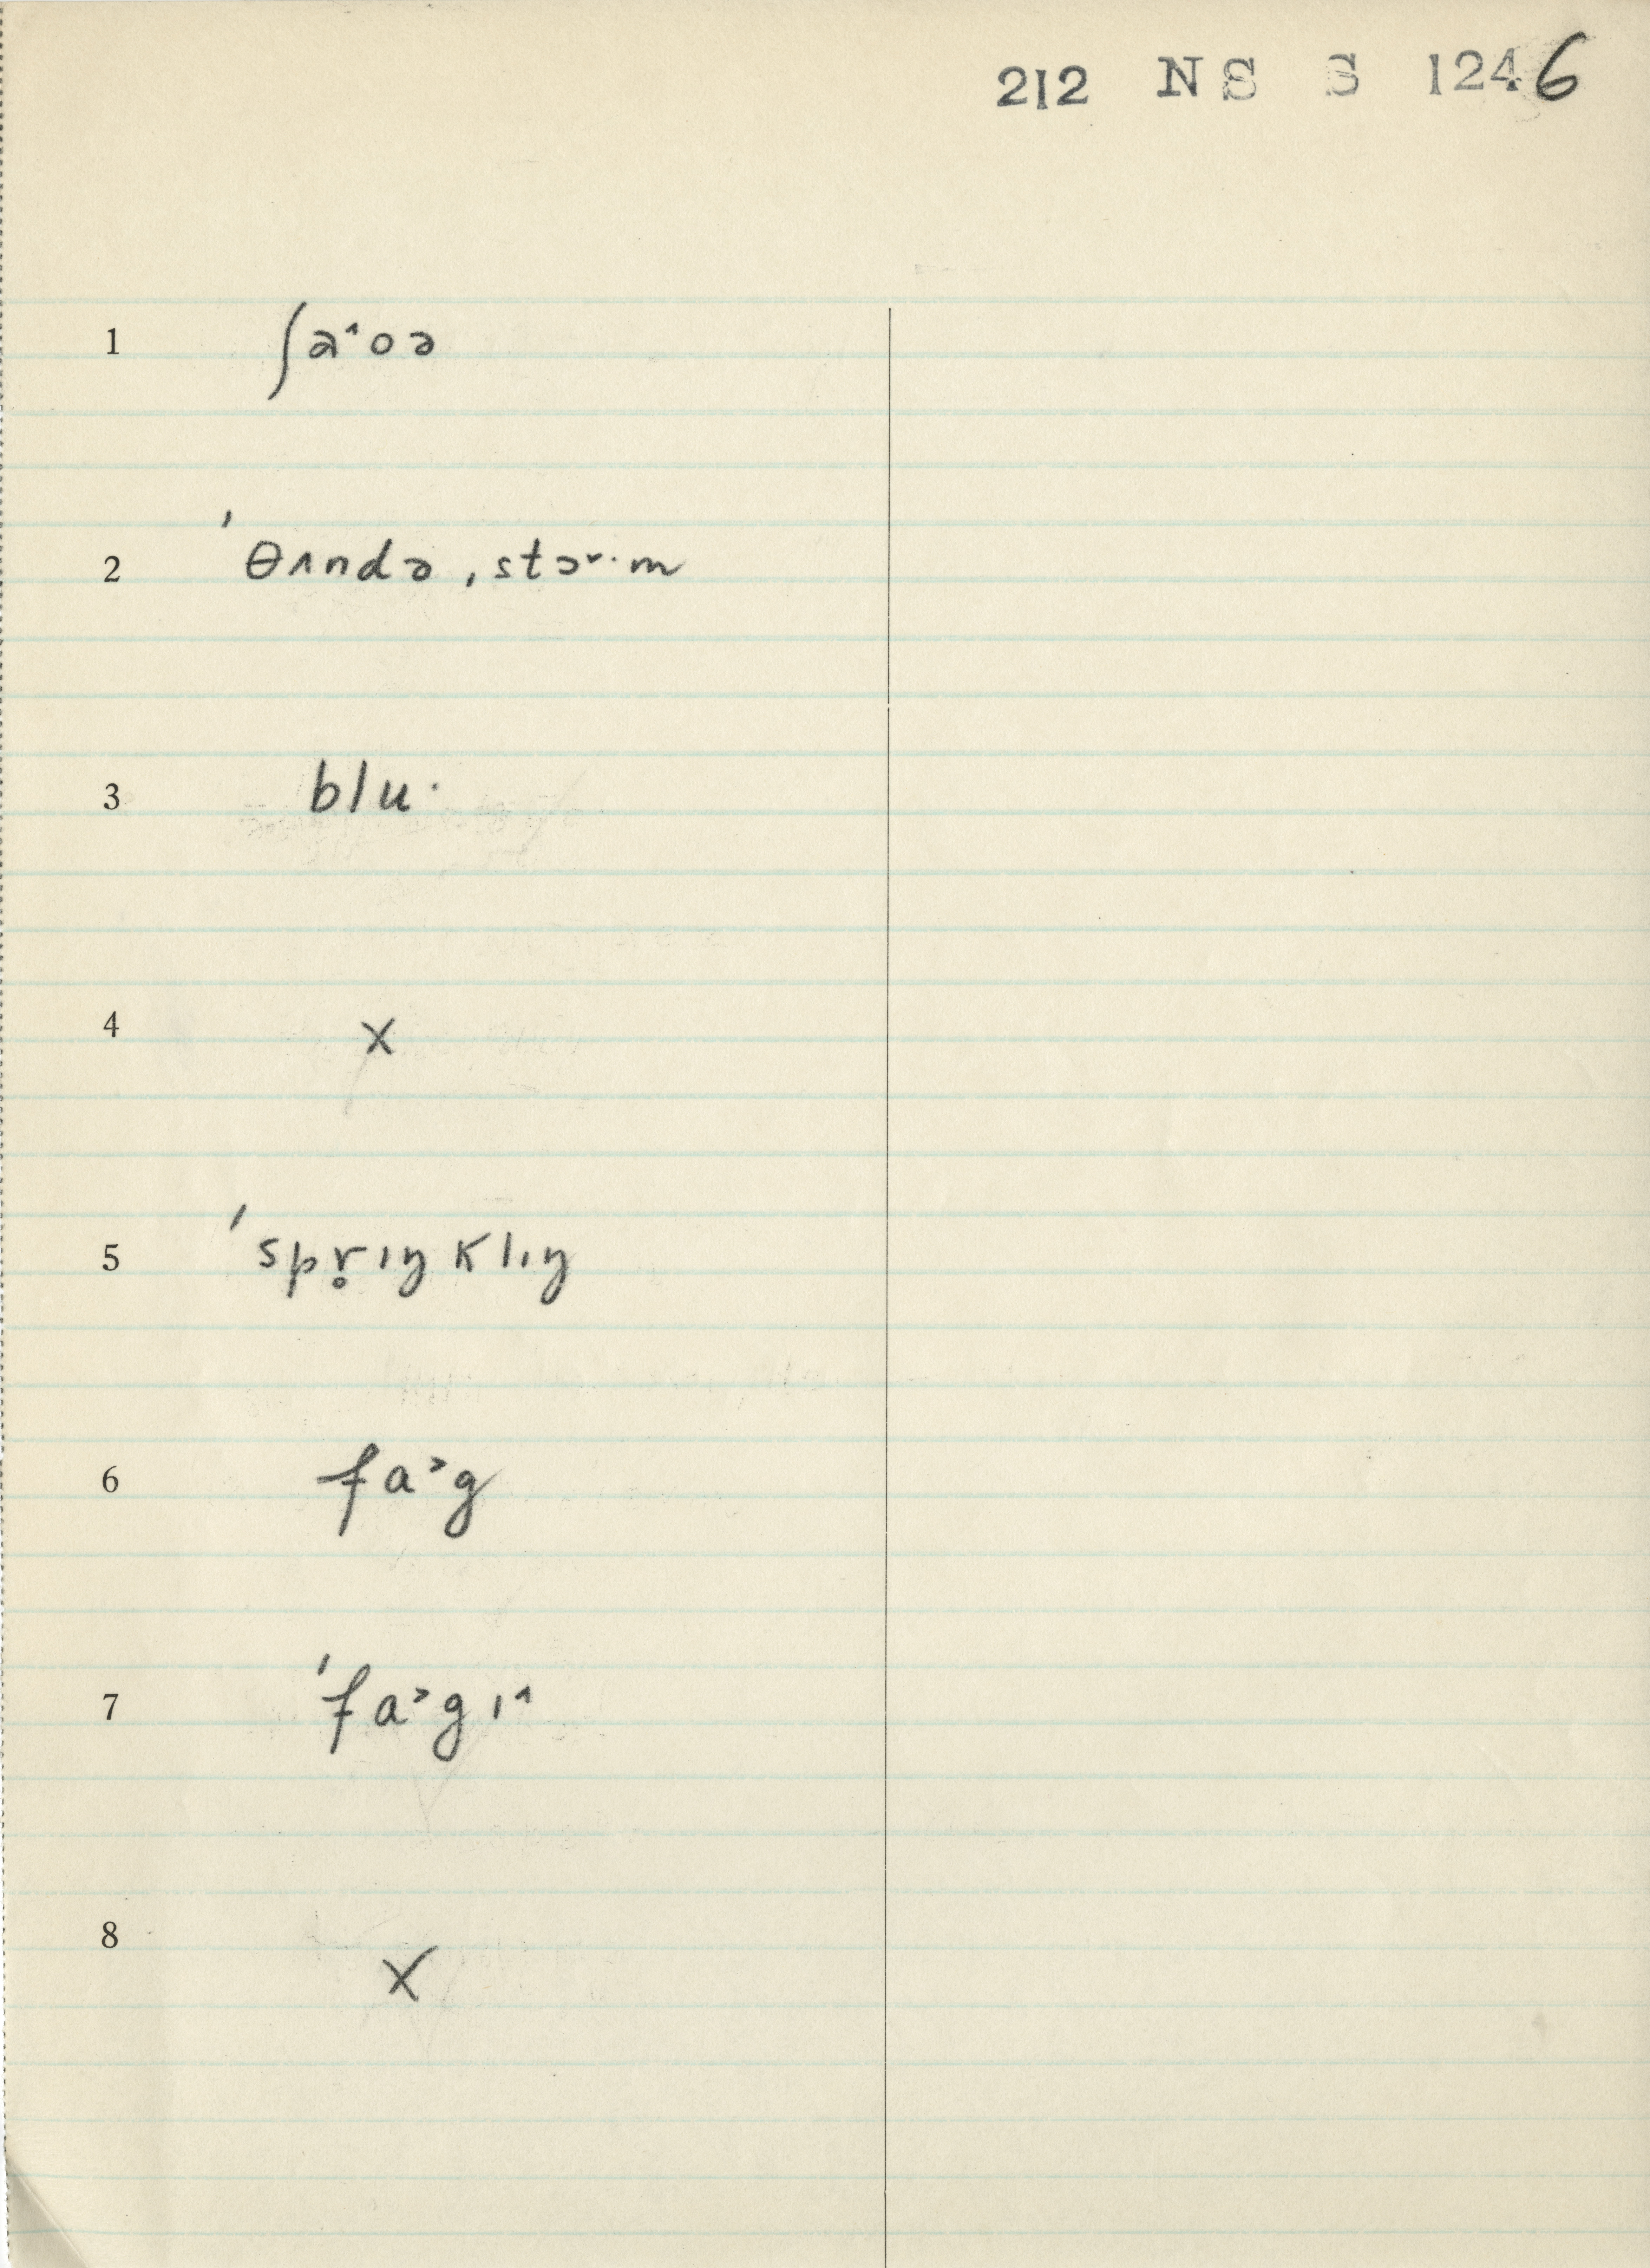 212 NS S 1246
1 ʃa˄oə
2 ˈθʌndə ˌstɔ˅·m
3 blu·
4 x
5 ˈspr̥ɪŋklɪŋ
6 fa˃g
7 ˈfa˃gɪ˄
8 x